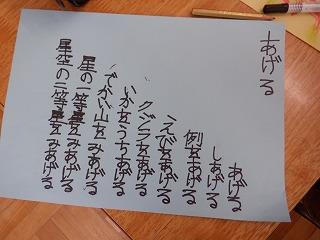 あげる
あげる
しあげる
例をあげる
えびをあげる
クジラをあげる
いかをうちあげる
でかい山をみあげる
星の一等星をみあげる
星空の二等星をみあげる